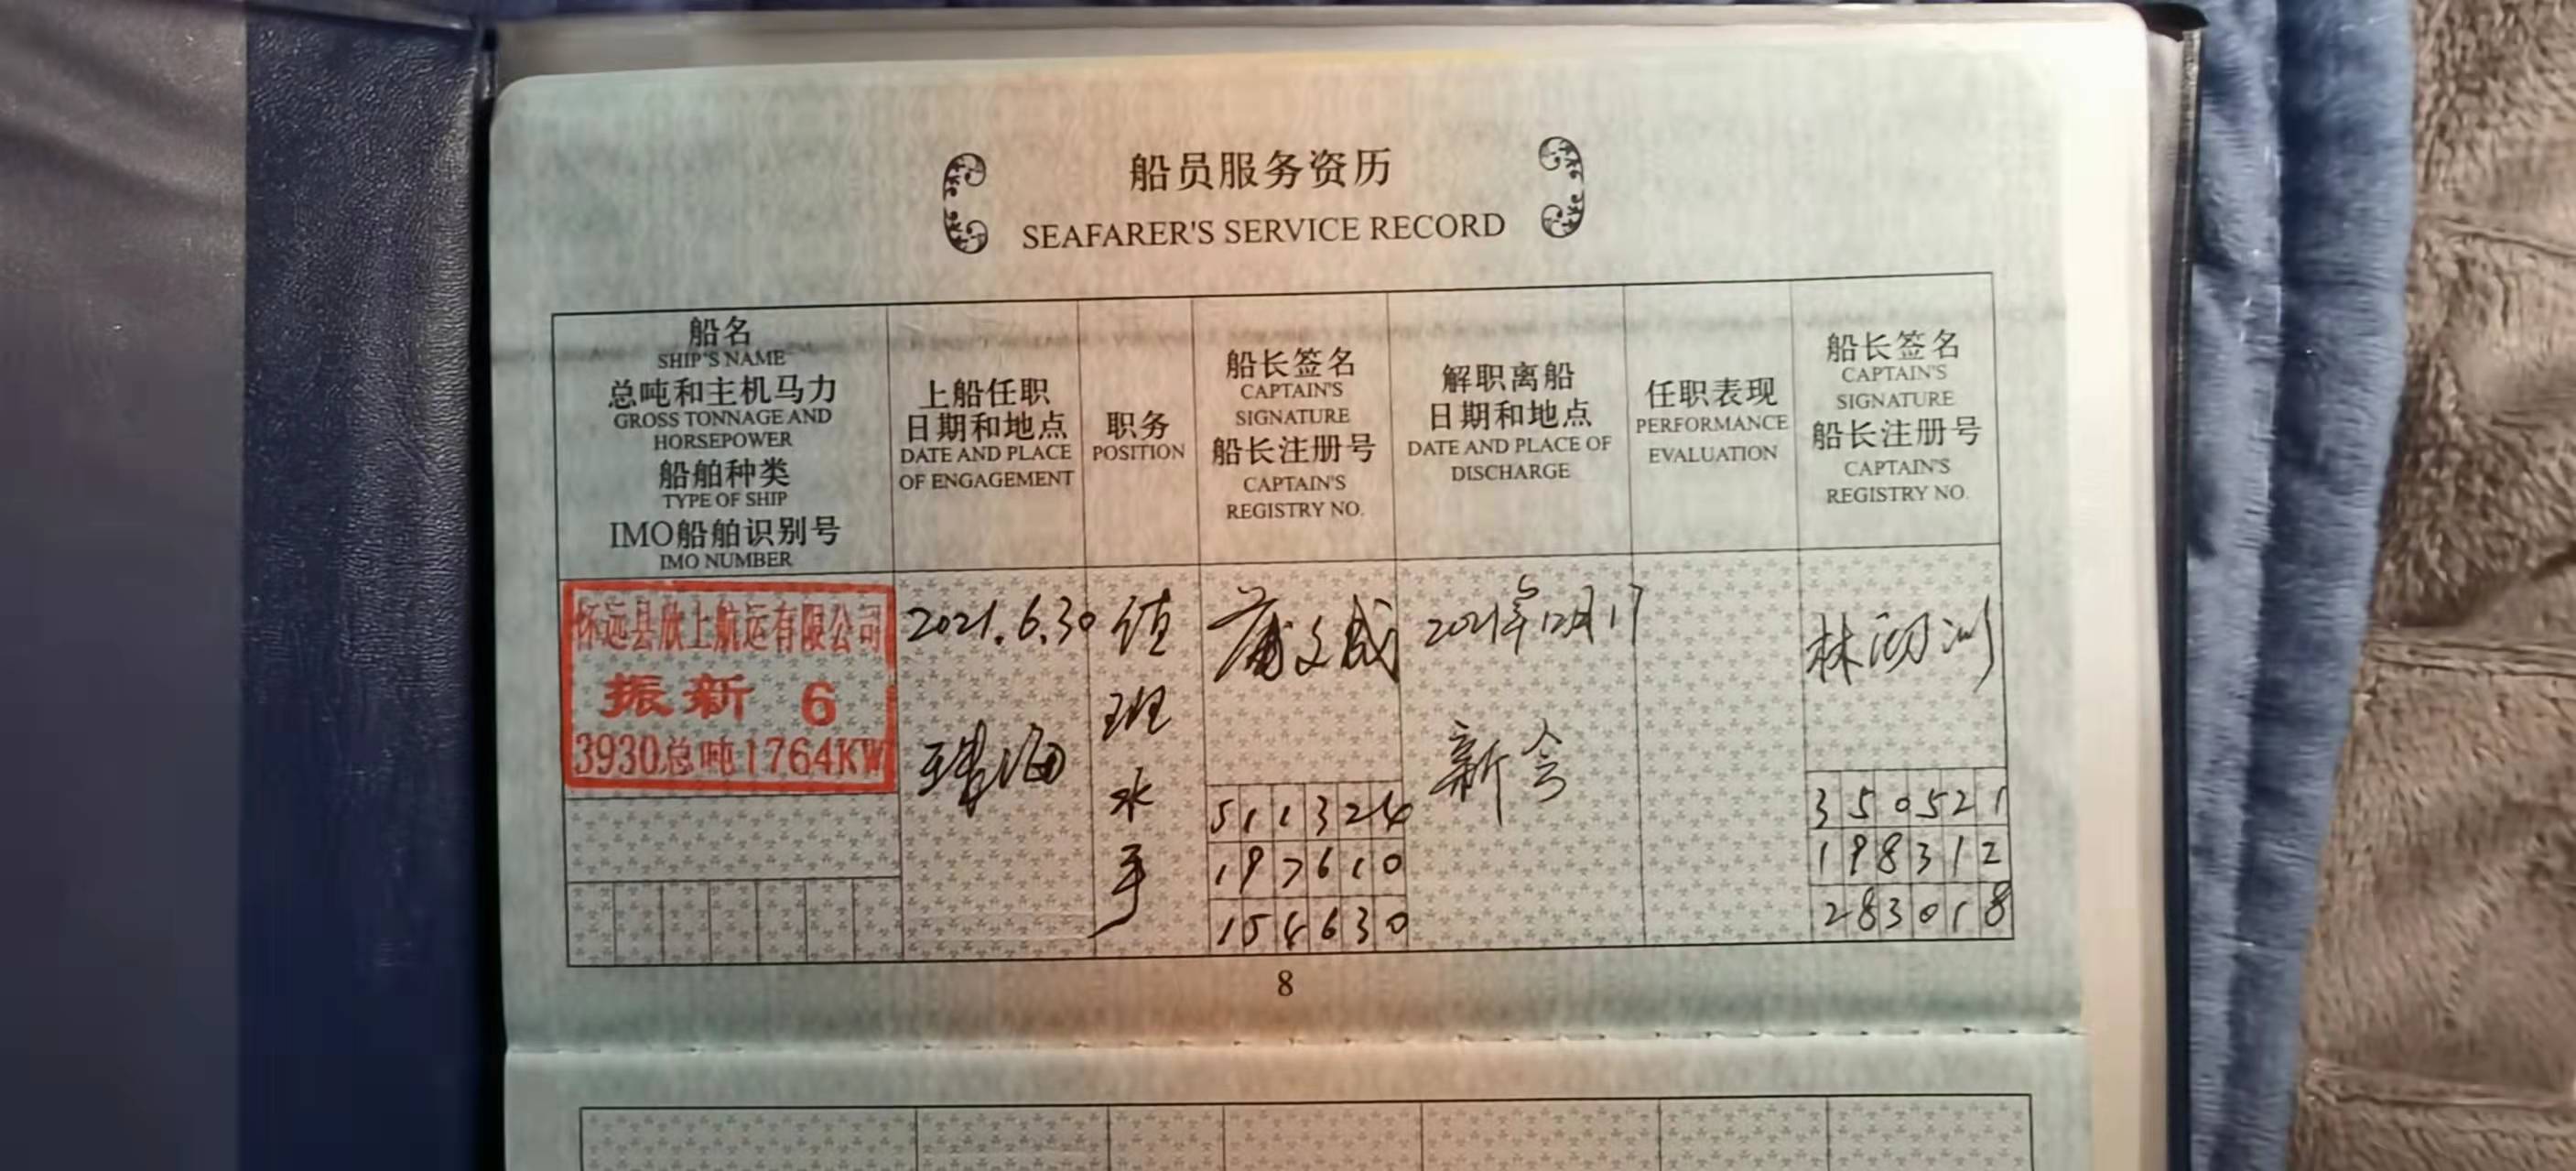 船员服务资历
SEAFARER'S SERVICE RECORD
船名
SHIP'S NAME
总吨和主机马力
GROSS TONNAGE AND
HORSEPOWER
船舶种类
TYPE OF SHIP
IMO船舶识别号
IMO NUMBER
上船任职
日期和地点
DATE AND PLACE
OF ENGAGEMENT
职务
POSITION
船长签名
CAPTAIN'S
SIGNATURE
船长注册号
CAPTAIN'S
REGISTRY NO.
解职离船
日期和地点
DATE AND PLACE OF
DISCHARGE
任职表现
PERFORMANCE
EVALUATION
船长签名
CAPTAIN'S
SIGNATURE
船长注册号
CAPTAIN'S
REGISTRY NO.
怀远县欣上航运有限公司
振新 6
3930总吨1764KW
2021.6.30
珠海
值
班
水
手
511324
197610
2021年12月17
新会
350521
198312
283018
8